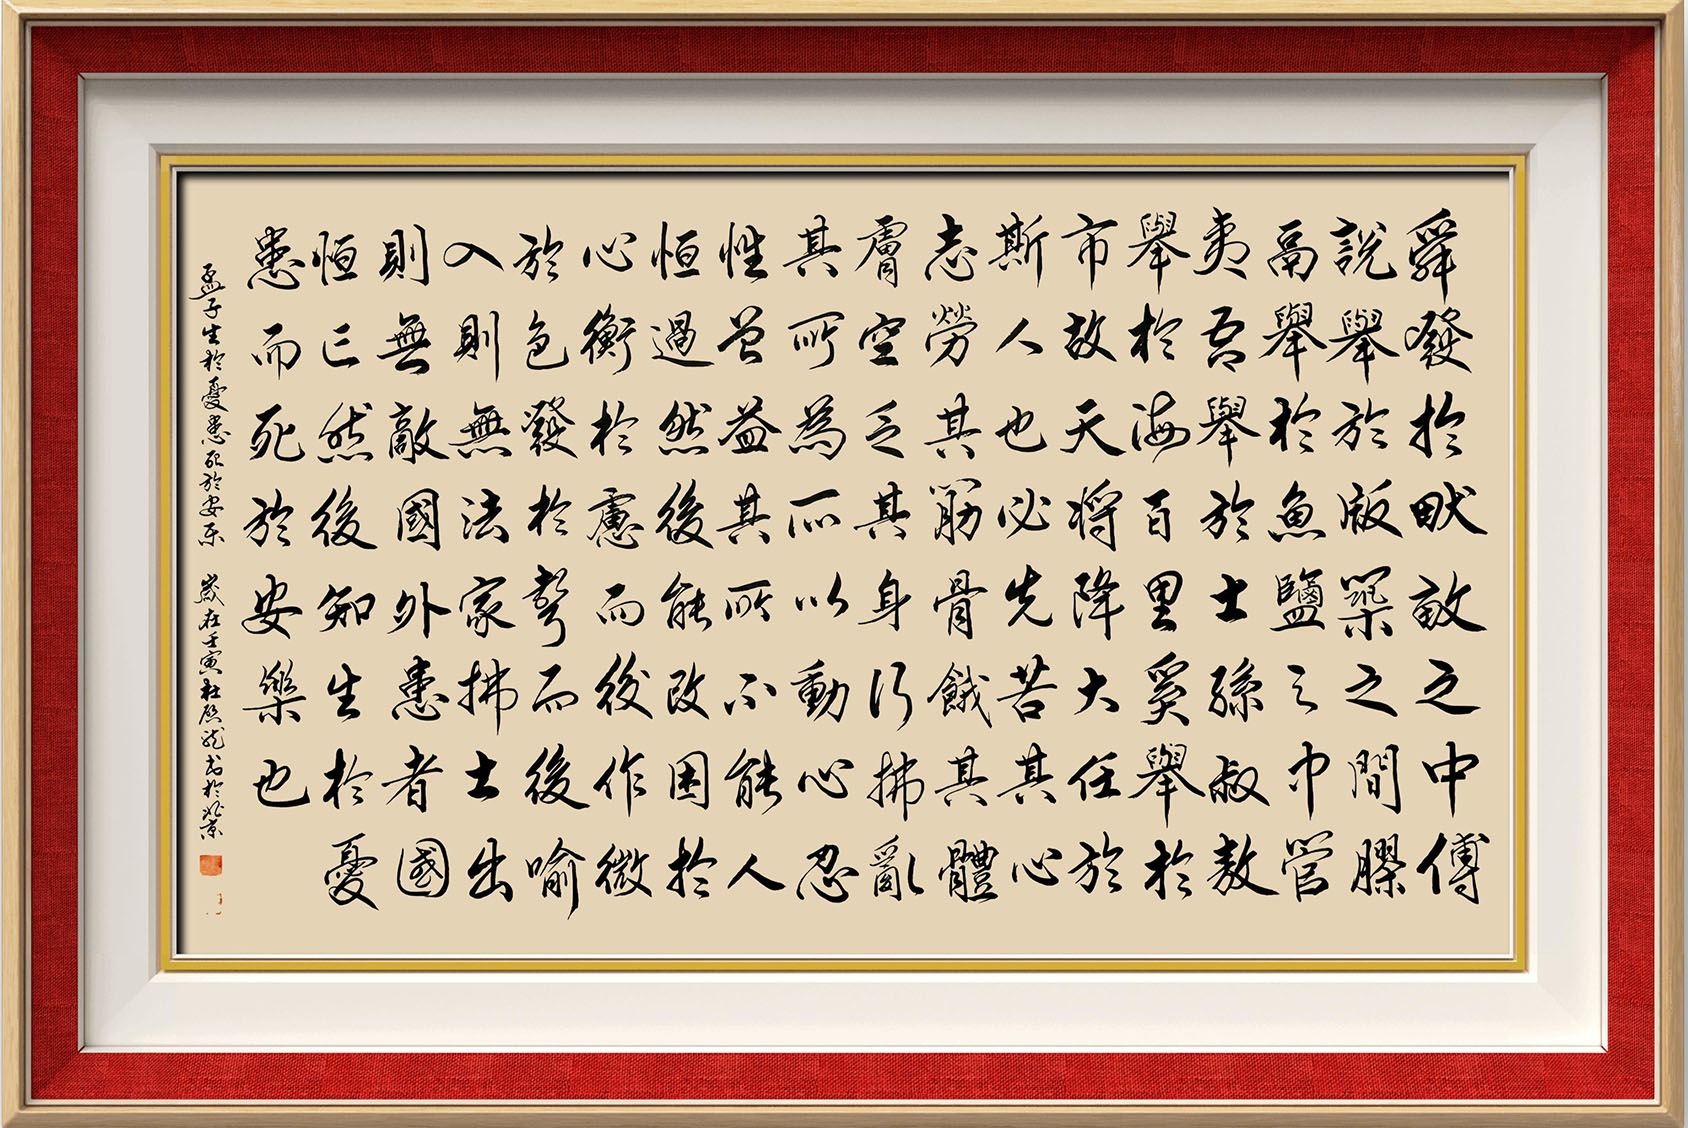 舜發於畎畝之中傅
說舉於版築之間膠
鬲舉於魚鹽之巾管
夷吾舉於士孫叔敖
舉於海百里奚舉於
市故天將降大任於
斯人也必先苦其心
志勞其筋骨餓其體
膚空乏其身行拂亂
其所為所以動心忍
性曾益其所不能人
恒過然後能改困於
心衡於慮而後作徵
於色發於聲而後喻
入則無法家拂士出
則無敵國外患者國
恒亡然後知生於憂
患而死於安樂也
孟子生於憂患死於安乐 歲在壬寅杜啟龙书於北京